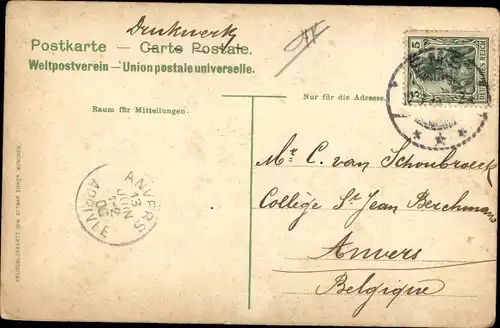 Drukwerk
Postkarte — Carte Postale.
Weltpostverein — Union postale universelle.
Raum für Mitteilungen.
Nur für die Adresse.
5 5
DEUTSCHES REICH
Mr C. van Schoubroeck
Collège St Jean Berchmans
Anvers
Belgique
ANVERS
13
JUIN
06
ARRIVÉE